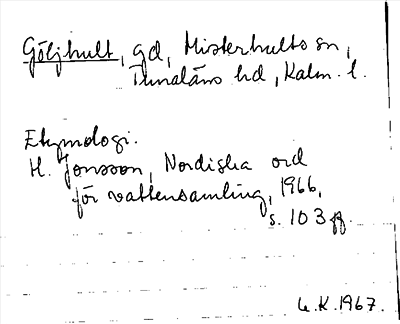 Göljhult, gd, Misterhults sn,
Tunaläns hd, Kalm. l.
Etymologi.
H. Jonsson, Nordiska ord
för vattensamling, 1966,
s. 103 ff.
G.K. 1967.